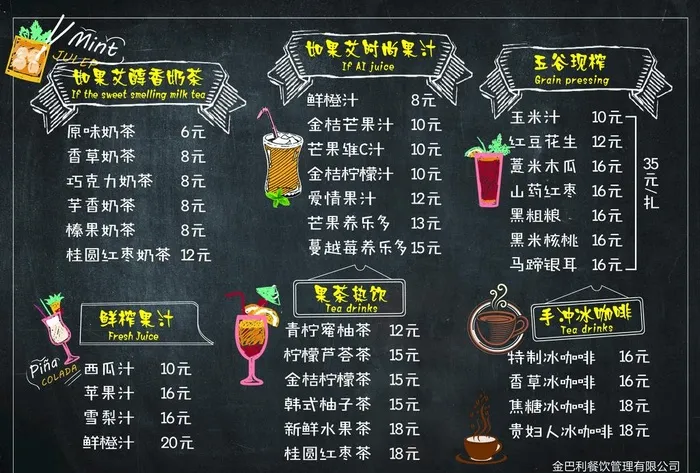 Mint
JULEP
如果艾醇香奶茶
If the sweet smelling milk tea
原味奶茶 6元
香草奶茶 8元
巧克力奶茶 8元
芋香奶茶 8元
榛果奶茶 8元
桂圆红枣奶茶 12元
如果艾时尚果汁
If AI juice
鲜橙汁 8元
金桔芒果汁 10元
芒果维C汁 10元
金桔柠檬汁 10元
爱情果汁 12元
芒果养乐多 13元
蔓越莓养乐多 15元
五谷现榨
Grain pressing
玉米汁 10元
红豆花生 12元
薏米木瓜 16元
山药红枣 16元
黑粗粮 16元
黑米核桃 16元
马蹄银耳 16元
35元/扎
Piña
COLADA
鲜榨果汁
Fresh Juice
西瓜汁 10元
苹果汁 16元
雪梨汁 16元
鲜橙汁 20元
果茶热饮
Tea drinks
青柠蜜柚茶 12元
柠檬芦荟茶 15元
金桔柠檬茶 15元
韩式柚子茶 15元
新鲜水果茶 18元
桂圆红枣茶 18元
手冲冰咖啡
Tea drinks
特制冰咖啡 16元
香草冰咖啡 16元
焦糖冰咖啡 18元
贵妇人冰咖啡 18元
金巴利餐饮管理有限公司